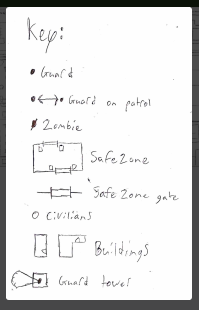 Key:
Guard
Guard on patrol
Zombie
Safe Zone
Safe Zone gate
Civilians
Buildings
Guard tower